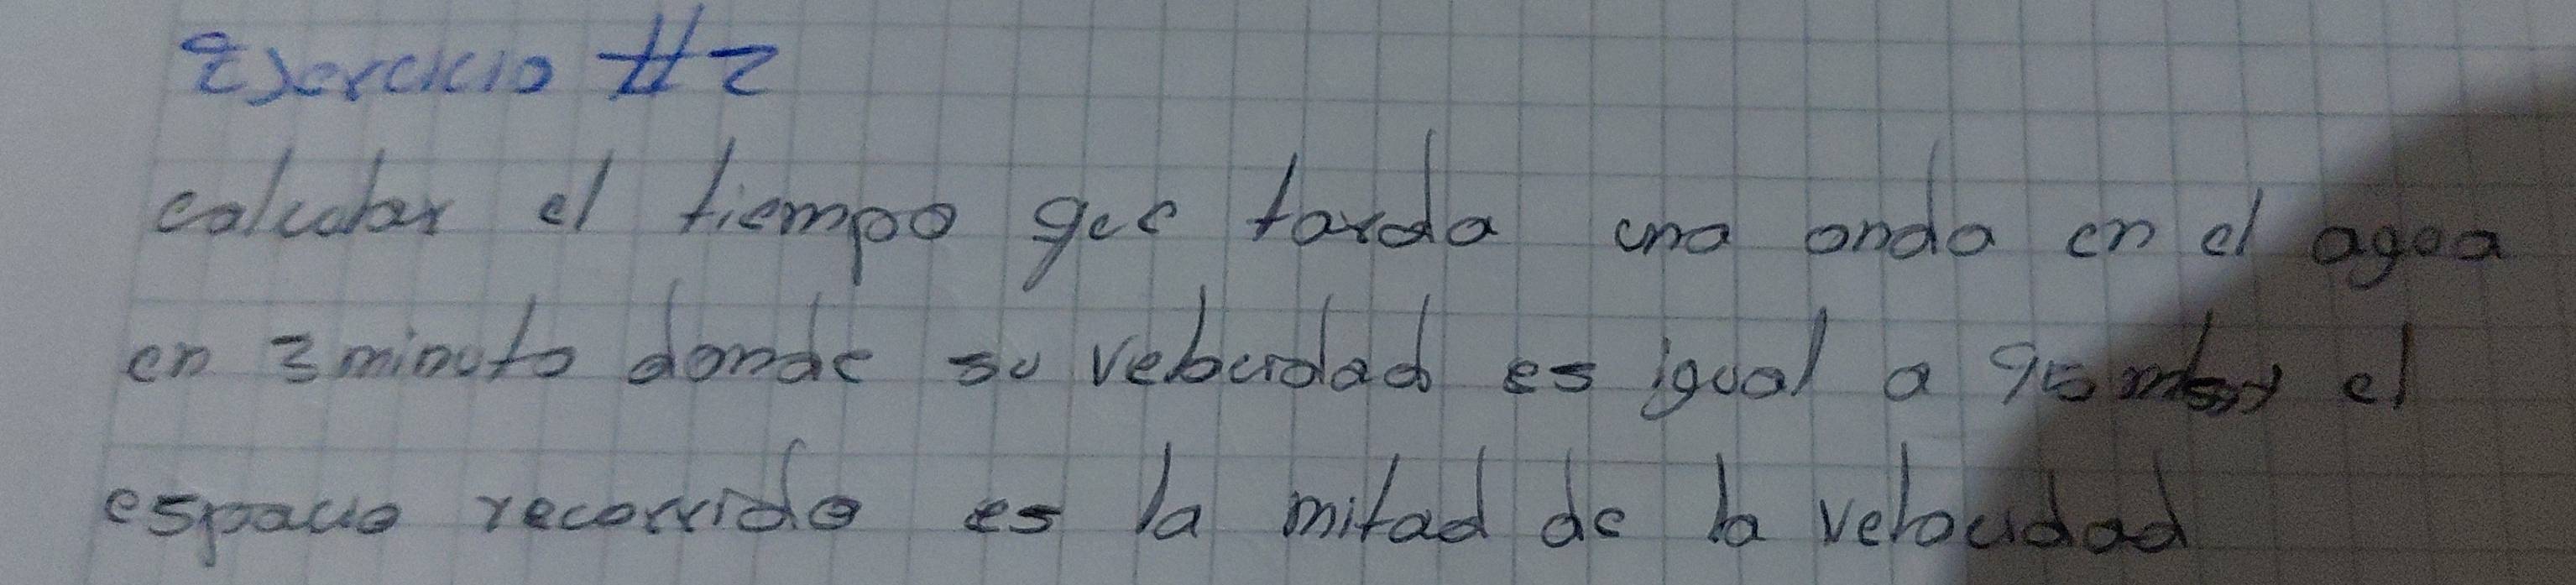 Ejercicio #2
calcular el tiempo que tarda una onda en el agua
en 3 minuto donde su velocidad es igual a 95 m/s y el
espacio recorrido es la mitad de la velocidad